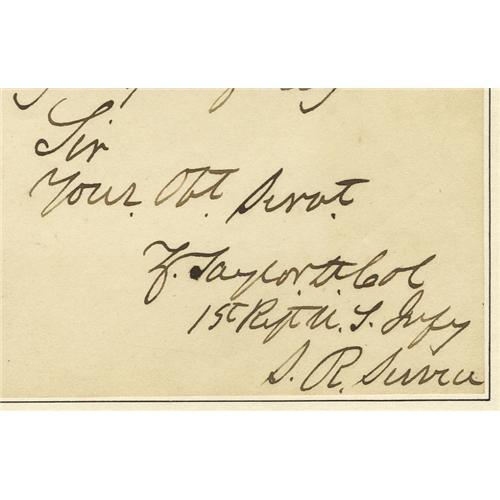 Sir
Your. Obt. Servt.
Z. Taylor Lt. Col
1st Regt U. S. Infy
S. R. Service